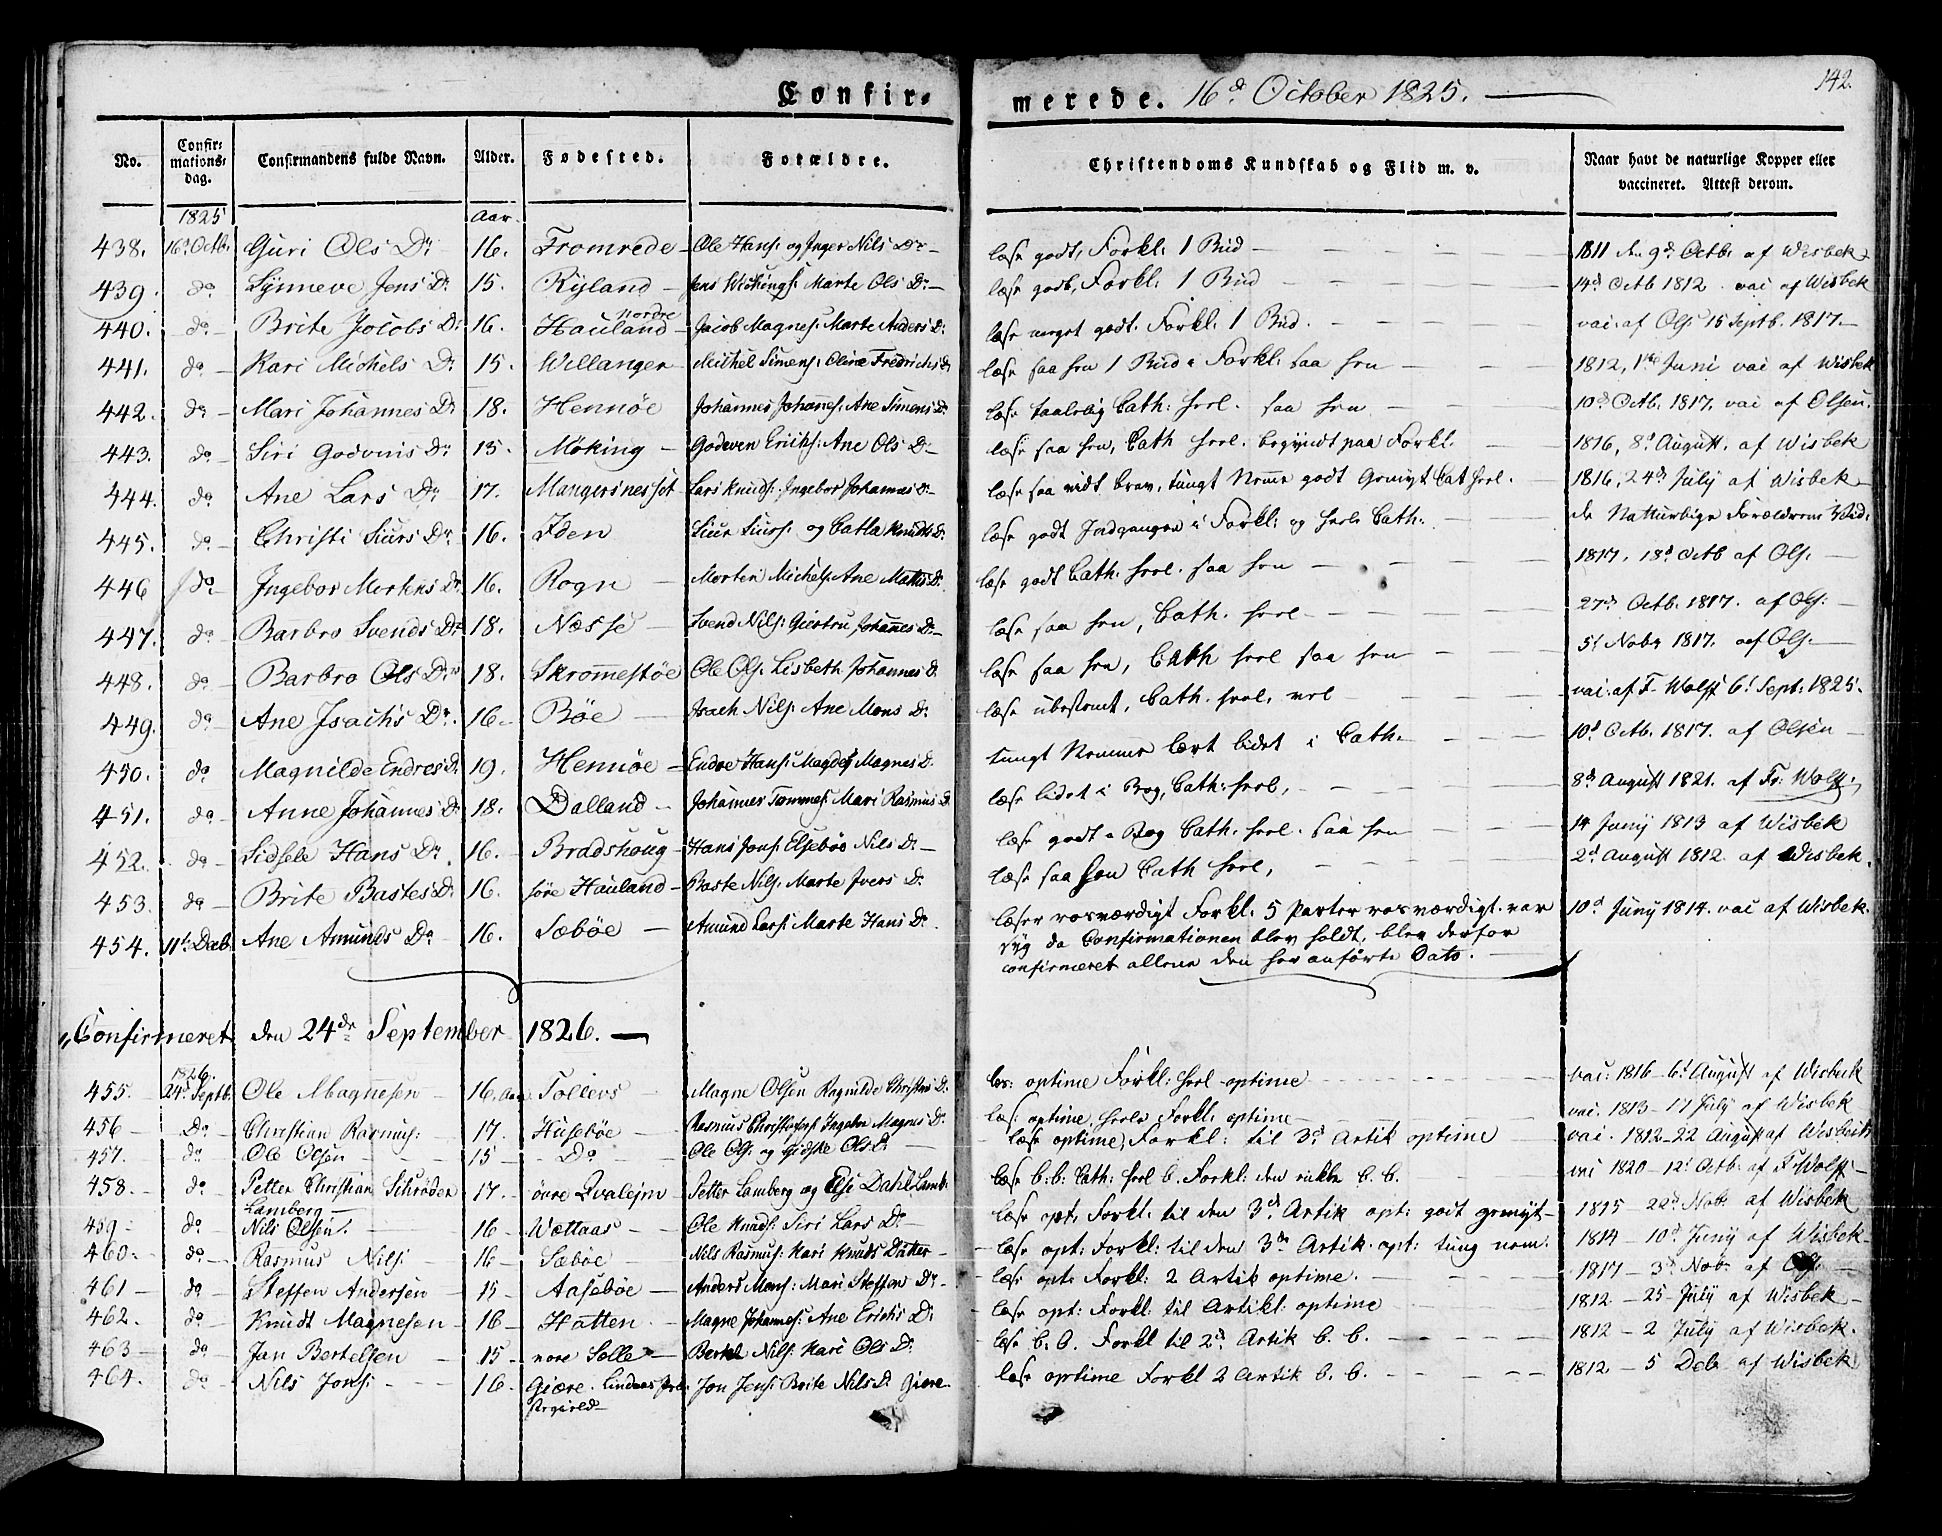 142.
Confir- merede. 16d October 1825.
No. Confirmations-dag. Confirmandens fulde Navn. Alder. Fødested. Forældre. Christendoms Kundskab og Flid m. v. Naar havt de naturlige Kopper eller vaccineret. Attest derom.
1825 Aar.
438. 16d Octb. Guri Ols Dr 16. Fromrede Ole Hans: og Inger Nils Dr læse godt, Forkl: 1 Bud 1811 den 9d Octb. af Wisbek
439. do Lynneve Jens Dr 15. Ryland Jens Wichings: Marte Ols Dr læse godt, Forkl: 1 Bud 14d Octb 1812 vai af Wisbek
440. do Brite Jocobs Dr 16. nordre Hauland Jacob Magnes: Marte Anders Dr læse meget godt. Forkl: 1 Bud. vai. af Ols: 15 Septb. 1817.
441. do Kari Michels Dr 15. Willanger Michel Simens: Oline Fredrichs Dr læse saa hen 1 Bud i Forkl: saa hen 1812, 1ste Juni vai af Wisbek
442. do Mari Johannes Dr 18. Hennøe Johannes Johanes: Ane Simens Dr læse taalelig Cath: heel. saa hen 10d Octb. 1817. vai af Olsen.
443. do Siri Godvins Dr 15. Møking Godeven Erichs: Ane Ols Dr læse saa hen, Cath heel. begyndt paa Forkl. 1816, 8d August. af Wisbek
444. do Ane Lars Dr 17. Mangersnesset Lars Knuds: Ingebor Johannes Dr læse saa vidt brav, tungt Nemme godt Gemyt. Cat heel. 1816, 24d July af Wisbek
445. do Christi Siurs Dr 16. Iden Siur Siurs: og Catla Knuds Dr læse godt Indgangen i Forkl: og heele Cath: de Natturlige Forældrens Vid:
446 do Ingebor Mortens Dr 16. Rogn Morten Michels: Ane Mattis Dr læse godt Cath. heel. saa hen 1817, 18d Octb af Ols:
447. do Barbro Svends Dr 18. Næsse Svend Nils: Giertru Johannes Dr læse saa hen, Cath. heel 27d Octb. 1817. af Ols:
448. do Barbro Ols Dr 18. Skromestøe Ole Ols: Lisbeth Johannes D. læse saa hen, Cath heel saa hen 5t Nobr 1817. af Ols:
449. do Ane Isachs Dr. 16 Bøe Isach Nils: Ane Mons Dr læse ubestemt, Cath. heel, vel vai. af F. Wolff 6t Sept: 1825.
450. do Magnilde Endres Dr 19. Hennøe Endre Hans: Magdel Magnes D. tungt Nemme lært lidet i Cath. 10d Octb. 1817. af Olsen
451. do Anne Johannes Dr 18. Dalland Johannes Tommes: Mari Rasmus D. læse lidet i Bog, Cath: heel, 8d August 1821. af Fr: Wolff,
452. do Sidsele Hans Dr. 16. Bradshoug Hans Jons: Elsebøe Nils Dr læse godt i Bog Cath. heel. saa hen 14 Juny 1813 af Wisbek
453. do Brite Bastes Dr 16. søre Hauland Baste Nils: Marte Ivers D. læse saa hen Cath heel, 2d August 1812. af Wisbek.
454. 11t Decb. Ane Amunds Dr 16. Sæbøe Amund Lars: Marte Hans Dr læser rosværdigt Forkl: 5 Parter rosværdigt. var 10d Juny 1814. vai af Wisbek.
syg da Confirmationen blev holdt, blev derfor
confirmeret allene den her anførte Dato.
Confirmeret den 24de September 1826.
1826.
455. 24d Septb. Ole Magnesen 16. Aar Tollevs Magne Olsen Ragnilde Christens D. læs: optime Forkl: heel optime vai: 1816 6t August af Wisbek
456 Do Christian Rasmus: 17. Husebøe Rasmus Christofers Ingebor Magnus Dr læse optime, heele Forkl: optime vai. 1813 17 July af Wisbek
457. do Ole Olsen 15 Do Ole Ols: og Gidske Ols D. læse optime, Forkl: til 3d Artik optime vai. 1812 22 August af Wisbek
458. do Petter Christian Schrøder Lamberg 17. øvre Qvalejm Petter Lamberg og Else Dahl Lamb: læse b: b: Cath: heel b. Forkl: den rikke b. b. vai 1820 12t Octb. af F. Wolff
459 do Nils Olsen. 16 Wættaas Ole Knuds: Siri Lars Dr læse opt: Forkl: til den 3d Artik opt: godt gemyt 1815 22d Nob. af Wisbek
460. do Rasmus Nils: 16 Sæbøe Nils Rasmus: Kari Knuds Datter læse opt: Forkl: til den 3de Artik. opt: tung nem: 1814 10d Juny af Wisbek
461 do Steffen Andersen 15 Aasebøe Anders Mons: Mari Steffen Dr læse opt: Forkl: 2 Artik optime. 1817 3d Nob. af Ols:
462. do Knudt Magnesen 16 Hatten Magne Johannes: Ane Erichs Dr læse opt: Forkl: til Artikl: optime 1812 25 July af Wisbek
463 do Jan Bertelsen 15 nore Solle Bertel Nils: Kari Ols Dr læse b. b. Forkl til 2d Artik b. b. 1812 2 July af Wisbek.
464. do Nils Jons: 16. Giære. Lindaas Præstegield Jon Jens: Brite Nils D. Giære. læse optime Forkl 2 Artik b. b. 1812 5 Deb af Wisbek